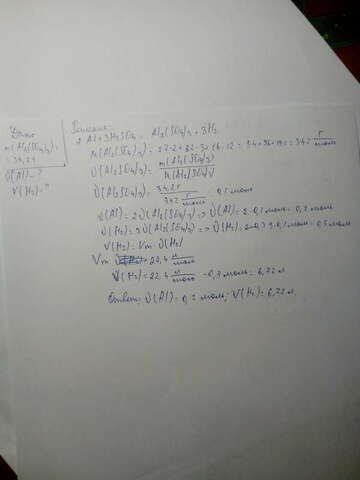 Дано
m(Al₂(SO₄)₃)=
=34,2 г
ν(Al)=?
V(H₂)=?
Решение:
2Al+3H₂SO₄ = Al₂(SO₄)₃+3H₂
M(Al₂(SO₄)₃)=27·2+32·3+16·12=54+96+192=342 г/моль
ν(Al₂(SO₄)₃)= m(Al₂(SO₄)₃) / M(Al₂(SO₄)₃)
ν(Al₂SO₄)₃)= 34,2 г / 342 г/моль = 0,1 моль
ν(Al)=2ν(Al₂(SO₄)₃)=>ν(Al)=2·0,1 моль=0,2 моль
ν(H₂)=3ν(Al₂(SO₄)₃)=>ν(H₂)= 0,1 моль=0,3 моль
V(H₂)=Vm·ν(H₂)
Vm =22,4 л/моль
V(H₂)=22,4 л/моль ·0,3 моль=6,72 л
Ответ: ν(Al)=0,2 моль; V(H₂)=6,72 л.